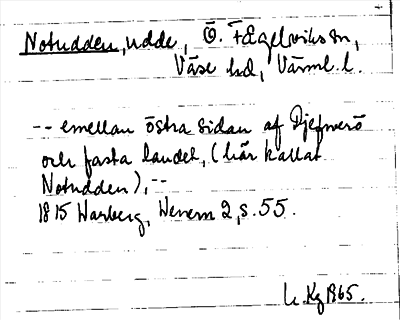 Notudden, udde, Ö. Fågelviks sn,
Väse hd, Värml. l.
-- emellan östra sidan af
och fasta landet, (här kallat
Notudden), --
1815 Warberg, Wenern 2, s. 55.
Kg 1965.